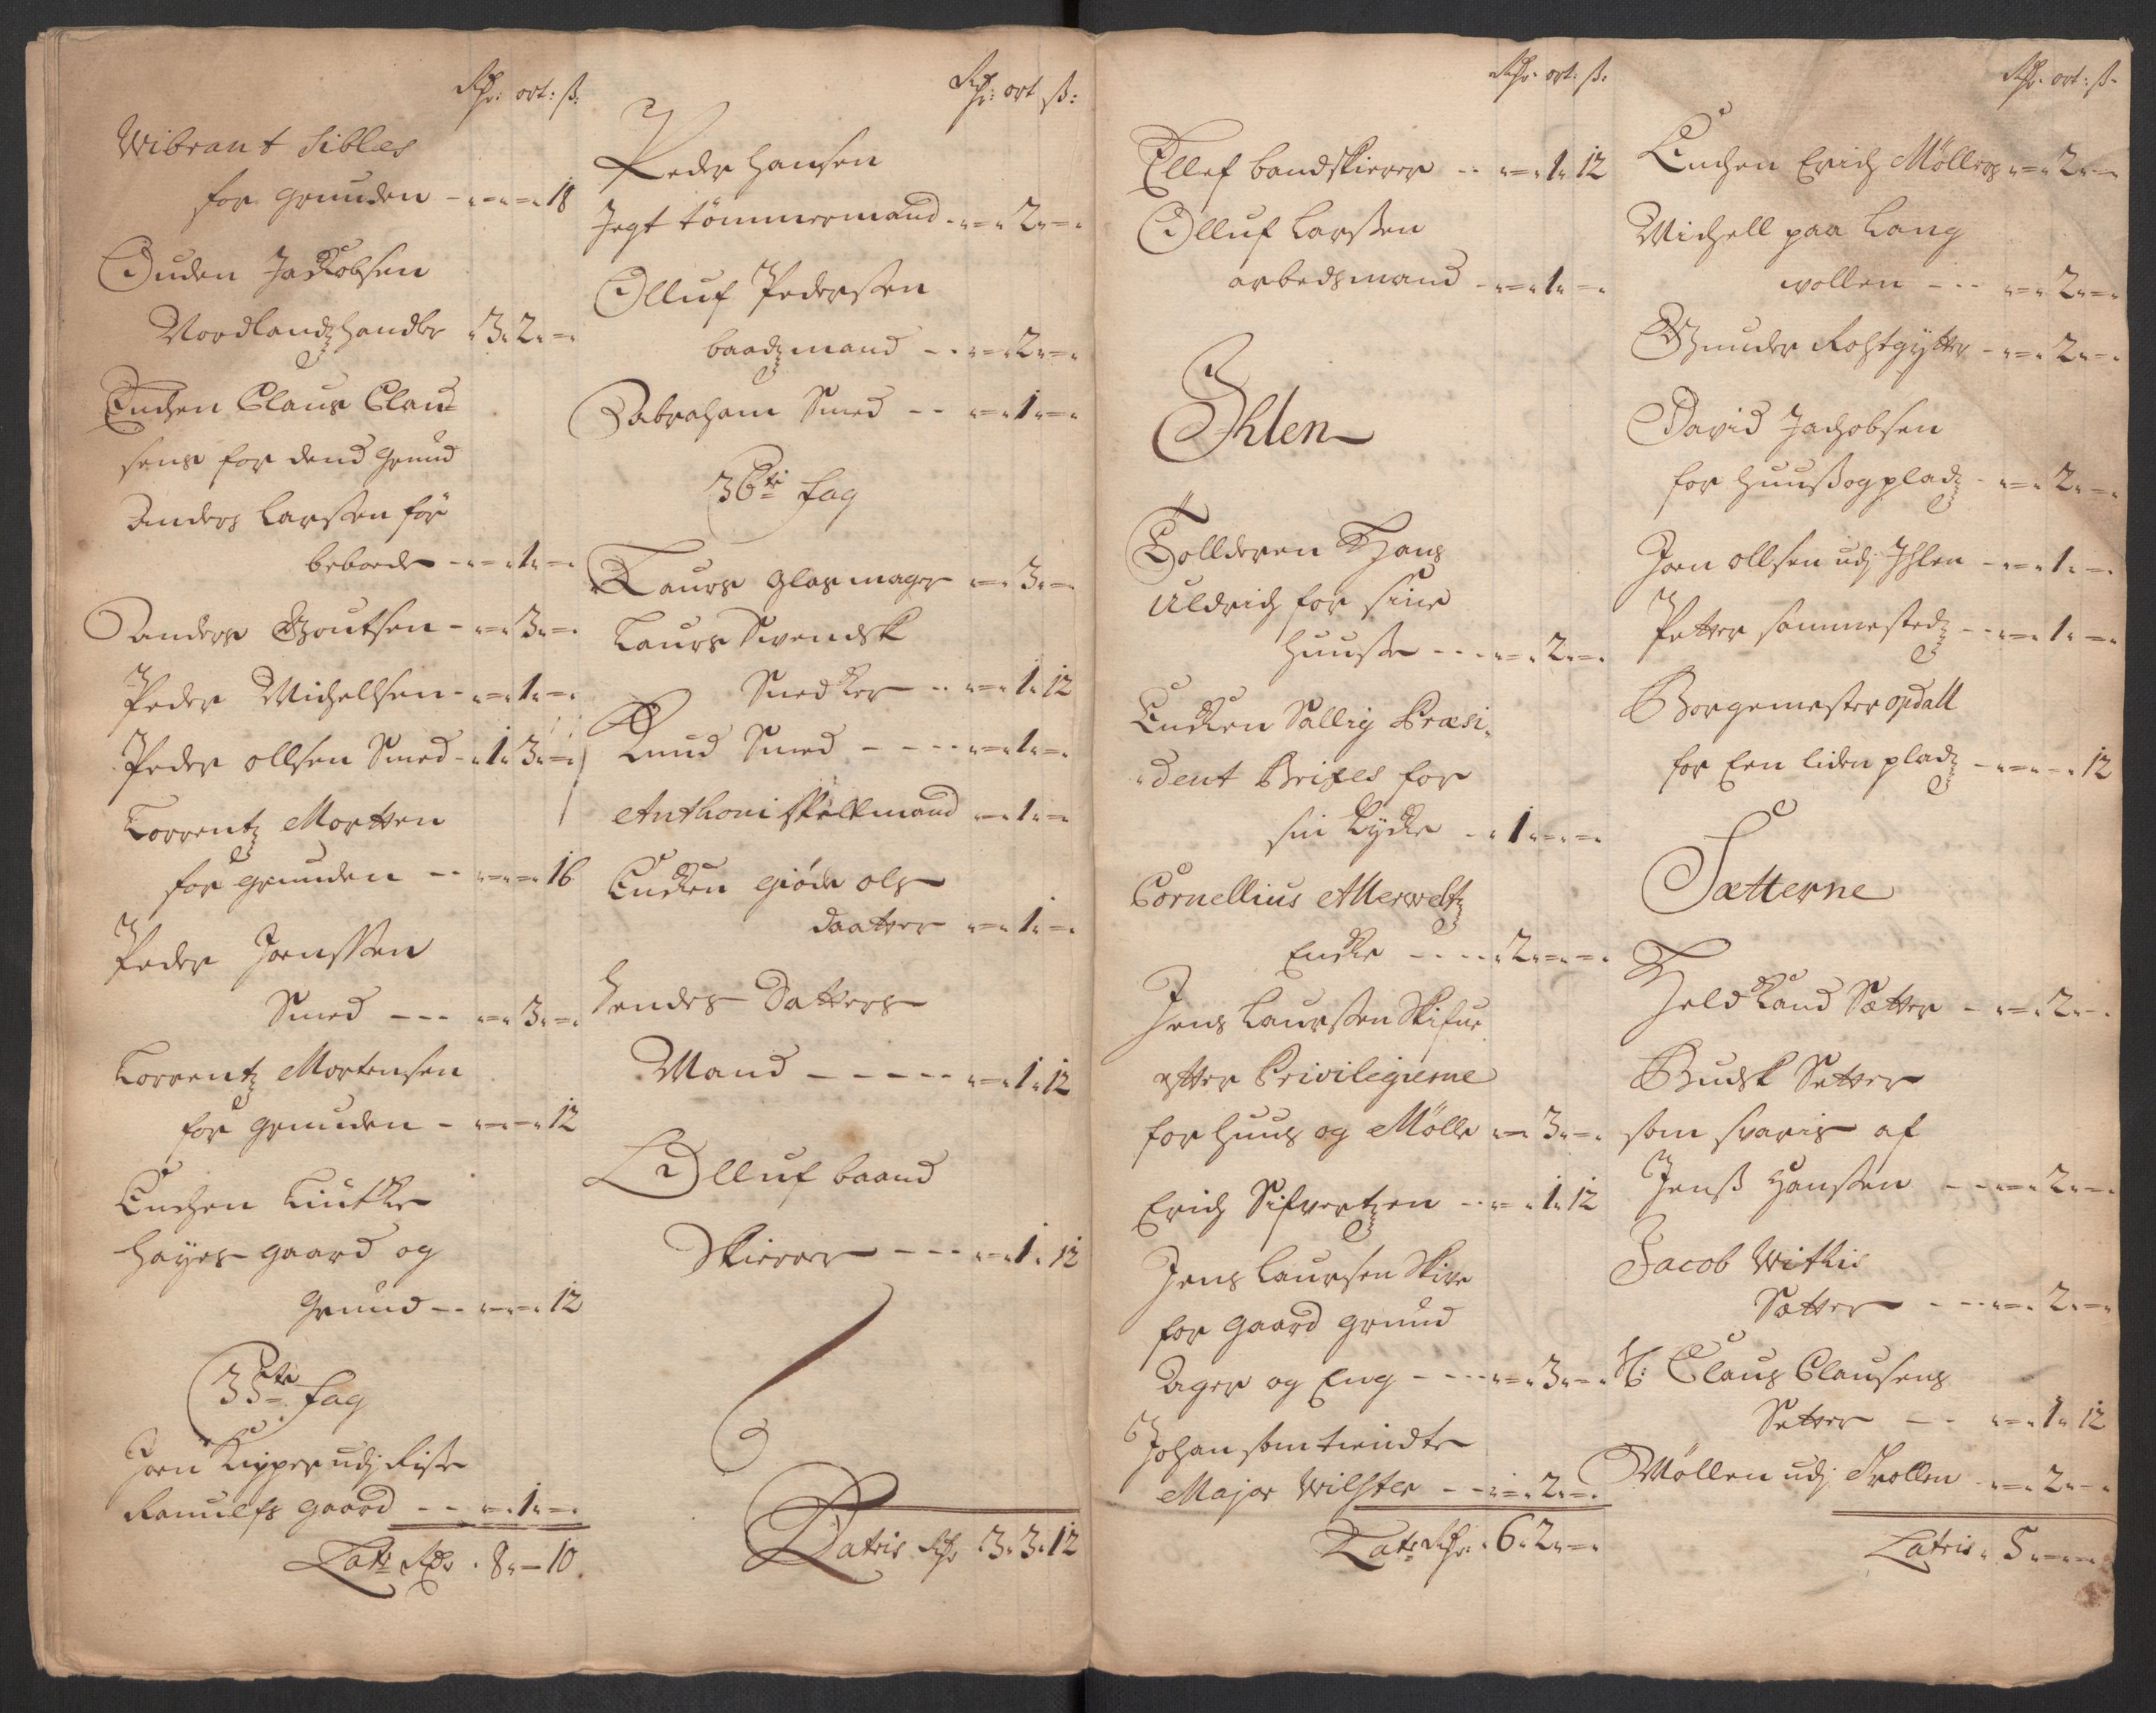 Rdr: ort: ß:
Wibrant Sibles
for grunden - - - 18
Ouden Jackobsen
Nordlandzhandler 3. 2. -
Enchen Claus Clau=
sens for dend grund
Anders Larssen før
beboede - - 1. -
Anders Goutsen - - 3. -
Peder Michellsen - - 1. -
Peder ollsen Smed - 1. 3. -
Lorrentz Morten
for grunden - - - 16
Peder Jonssen
Smed - - - 3. -
Lorrentz Mortensen
for grunden - - - 12
Enchen Lütke
Hayes gaard og
Grund - - - 12
35te Fag
Joen Kipper udj
Ranulfs gaard - - 1. -
Late Rdr 8. - 10.
Rdr: ort ß:
Peder Hansen
Jegt tömmermand - - 2. -
Olluf Pederssen
baadzmand - - 2. -
Abraham Smed - - 1. -
36te fag
Laurs Glasmager - 3. -
Laurs Swendsk
Snedker - - 1. 12
Knud Smed - - - 1. -
Anthoni Spillmand - 1. -
Encken Giöde ols
daatter - 1. -
Hendes Datters
Mand - - - - - 1. 12
Olluf baand
Skierer - - - 1. 12
Latris Rdr 3. 3. 12
Rdr: ort: ß:
Ellef bandskierer - - 1. 12
Olluf Larssen
arbedsmand - - 1. -
Ihlen
Tolleren Hans
Uldrich for sine
Huusse - - - 2. -
Encken Sallig Præsi=
dent Brixes for
sin Lycke - 1. - -
Cornellius Merweltz
Encke - - - 2. - -
Jens Laurssen Skifue
effter Privilegierne
for huus og Mölle - 3. -
Erich Sifvertzen - - 1. 12
Jens Laursen Skive
for gaard grund
Ager og Eng - - - 3. -
Johan som tiendte
Major Wilster - - 2. -
Late Rdr: 6. 2. -
Rdr. ort: ß.
Enchen Erich Möllers - 2. -
Michell paa Lang
wollen - - - 2. -
Gunder - - 2. -
David Jachobsen
for huuß og pladz - - 2. -
Joen ollsen udj Ihlen - - 1. -
Petter sommested - - 1. -
Borgemester opdall
for Een liden pladz - - - 12
Sætterne
Sætter - - 2. -
Sætter
som svaris af
Jenß Hanssen - - 2. -
Jacob
Sætter - - 2. -
H: Claus Clausens
Setter - - 1. 12
Möllen udj - - 2. -
Latris. 5. - -